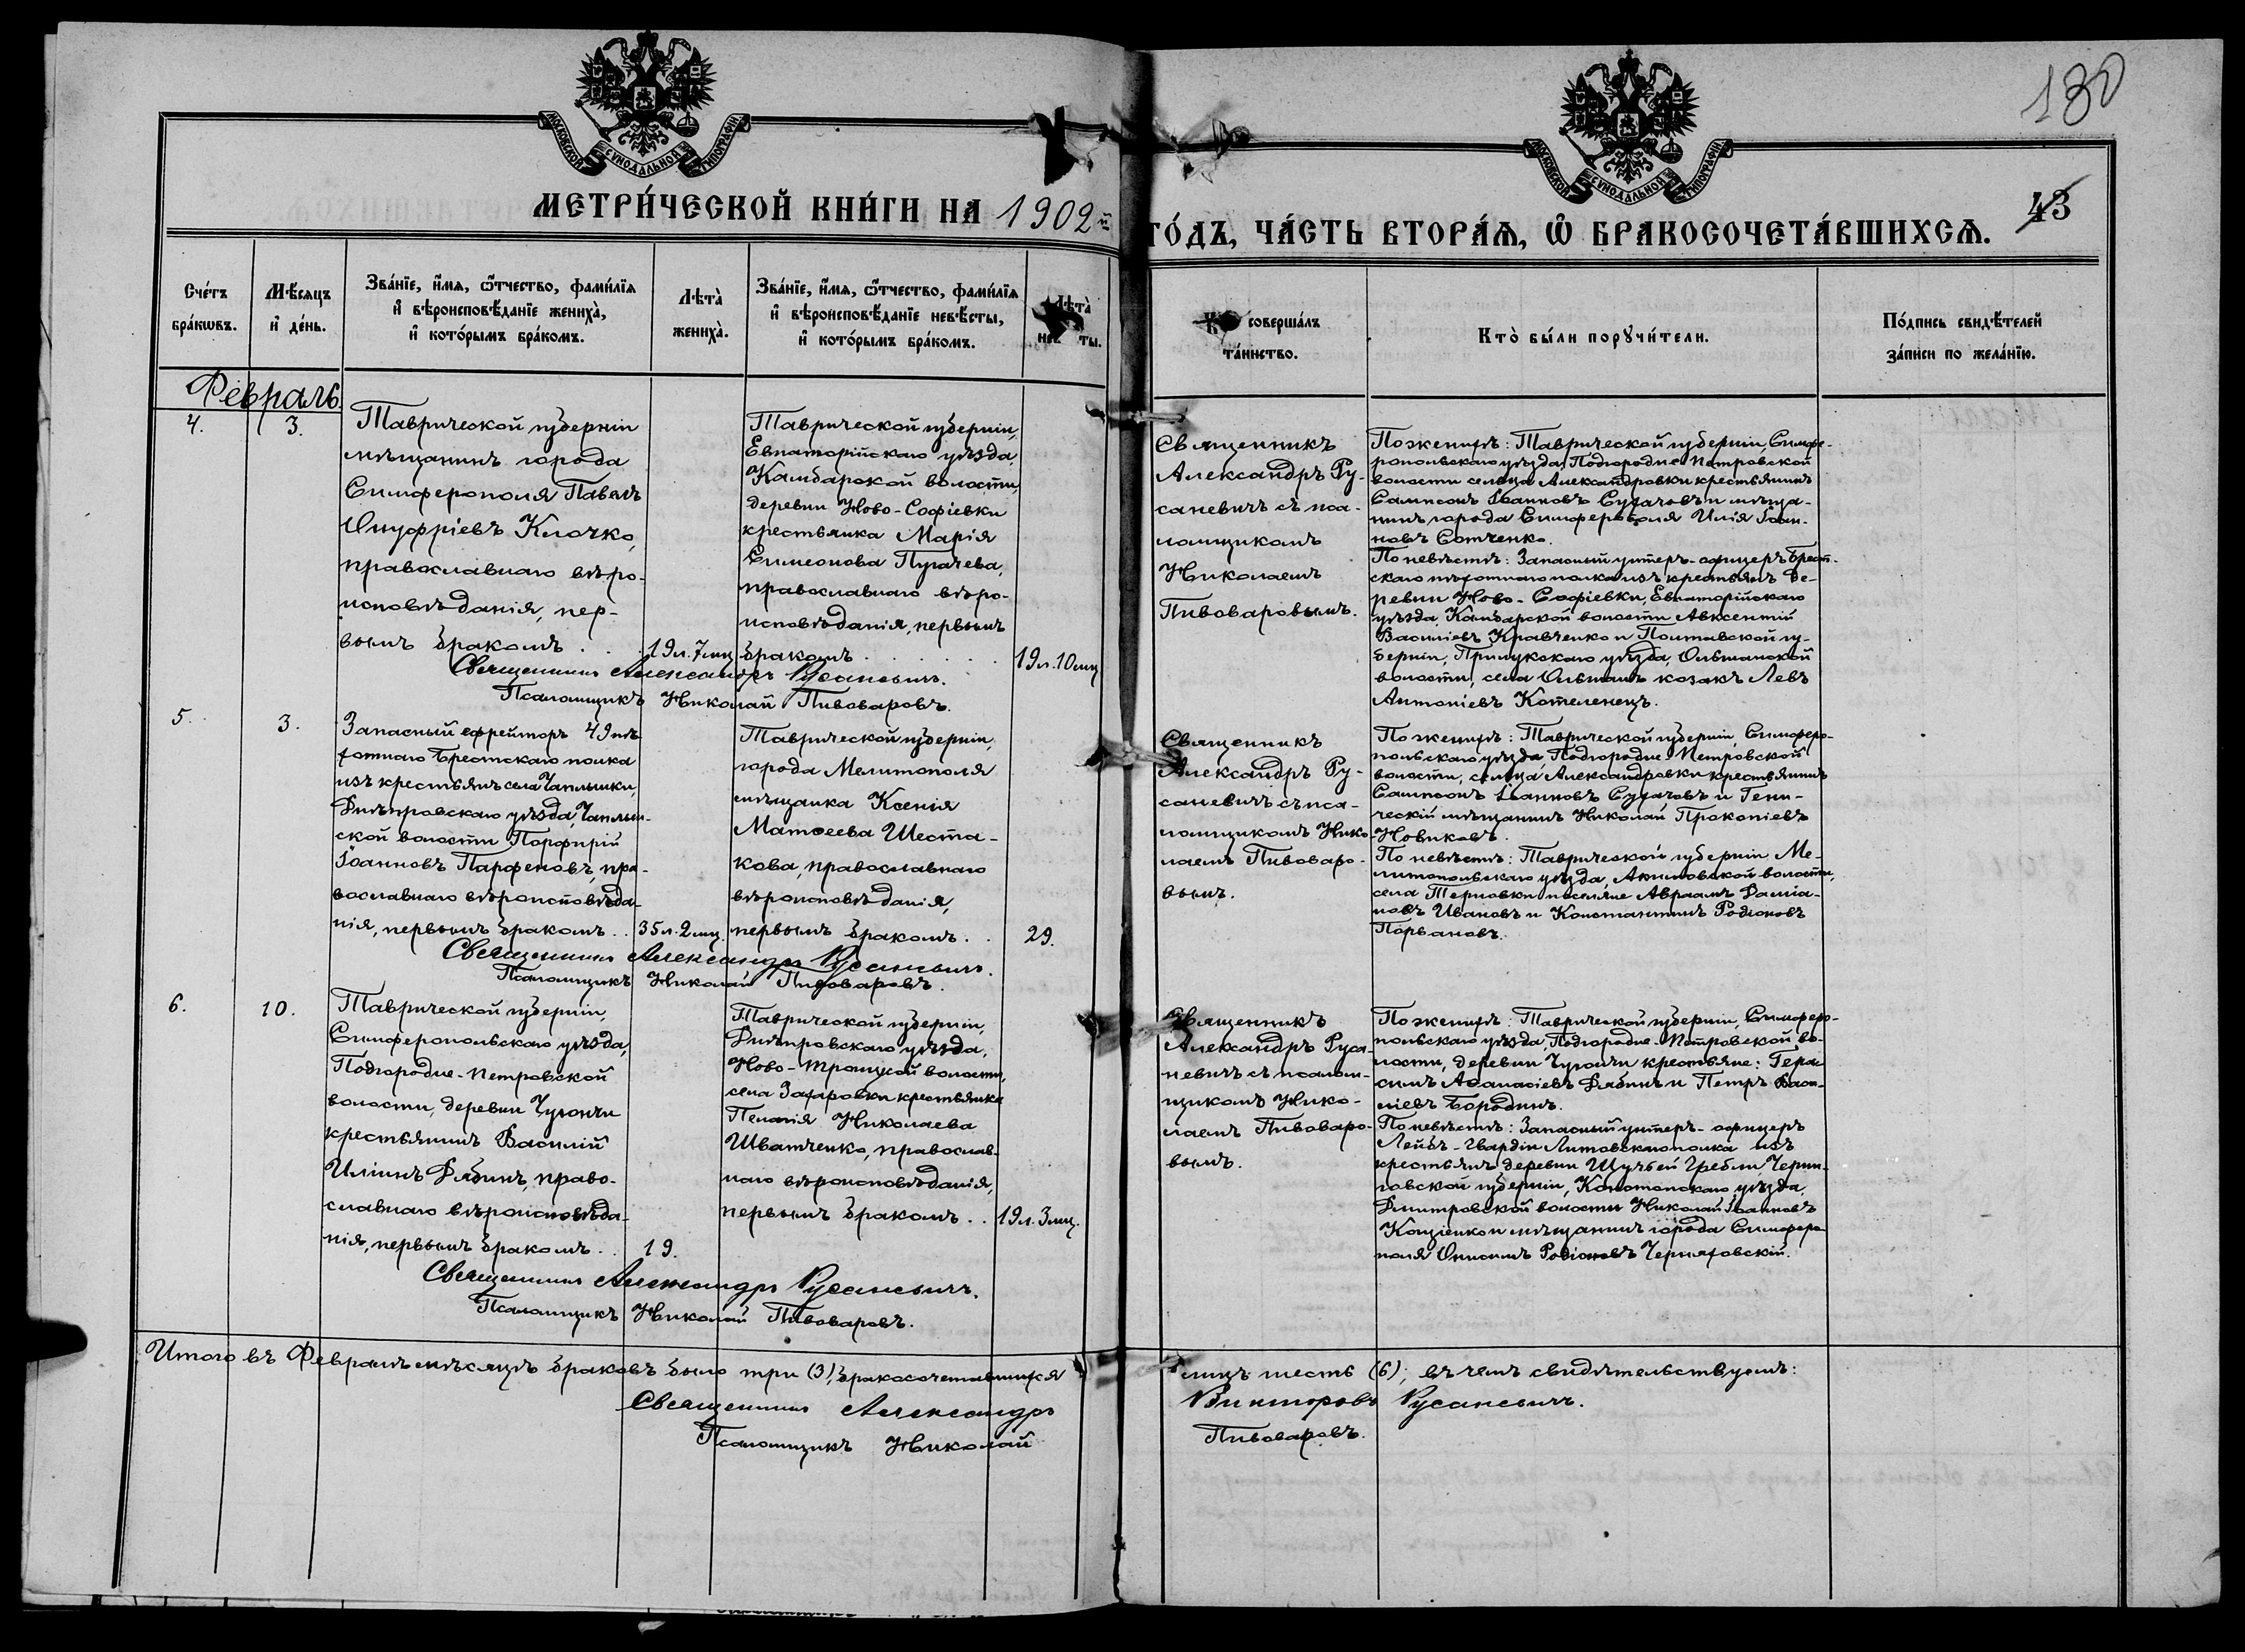 130
МОСКОВСКОЙ СѴНОДАЛЬНОЙ ТИПОГРАФІИ
МОСКОВСКОЙ СѴНОДАЛЬНОЙ ТИПОГРАФІИ
МЕТРИ́ЧЕСКОЙ КНИ́ГИ НА 1902й
ГО́ДЪ, ЧА́СТЬ ВТОРА́Ѧ, Ѽ БРАКОСОЧЕТА́ВШИХСѦ.
43
Сче́тъ
бра́кѡвъ.
Мѣ́сяцъ
и҆ де́нь.
Зва́нїе, и҆́мя, ѻ҆́тчество, фами́лїя
и҆ вѣроисповѣ́данїе жениха̀,
и҆ кото́рымъ бра́комъ.
Лѣта̀
жениха̀.
Зва́нїе, и҆́мя, ѻ҆́тчество, фами́лїя
и҆ вѣроисповѣ́данїе невѣ́сты,
и҆ кото́рымъ бра́комъ.
Лѣта̀
не ты.
соверша́лъ
та́инство.
Кто̀ бы́ли порꙋчи́тели.
По́дпись свидѣ́телей
за́писи по жела́нїю.
Февраль.
4.
3.
Таврической губерніи
мѣщанинъ города
Симферополя Павелъ
Онуфріевъ Клочко,
православнаго вѣро-
исповѣданія, пер-
вымъ бракомъ . . .
19 л. 7 мц
Таврической губерніи,
Евпаторійскаго уѣзда,
Камбарской волости,
деревни Ново-Софіевки
крестьянка Марія
Симеонова Пугачева,
православнаго вѣро-
исповѣданія, первымъ
бракомъ . . . . .
19 л. 10 мц
Священникъ
Александръ Ру-
саневичъ съ пса-
ломщикомъ
Николаемъ
Пивоваровымъ.
По женихѣ: Таврической губерніи, Симфе-
ропольскаго уѣзда, Подгородне-Петровской
волости сельца Александровки крестьянинъ
Сампсонъ Іоанновъ Сугачовъ и мѣща-
нинъ города Симферополя Илія Іоан-
новъ Сотченко.
По невѣстѣ: Запасный унтеръ-офицеръ Брест-
скаго пѣхотнаго полка изъ крестьянъ де-
ревни Ново-Софіевки, Евпаторійскаго
уѣзда, Камбарской волости Авксентій
Василіевъ Кравченко и Полтавской гу-
берніи, Прилукскаго уѣзда, Ольшанской
волости, села Ольшанъ козакъ Левъ
Антоніевъ Котеленецъ.
Священникъ Александръ Русаневичъ.
Псаломщикъ Николай Пивоваровъ.
5.
3.
Запасный ефрейторъ 49 пѣ-
хотнаго Брестскаго полка
изъ крестьянъ села Чаплынки,
Днѣпровскаго уѣзда, Чаплын-
ской волости Порфирій
Іоанновъ Парфеновъ, пра-
вославнаго вѣроисповѣда-
нія, первымъ бракомъ . .
35 л. 2 мц.
Таврической губерніи,
города Мелитополя
мѣщанка Ксенія
Матѳеева Шеста-
кова, православнаго
вѣроисповѣданія,
первымъ бракомъ . .
29.
Священникъ
Александръ Ру-
саневичъ съ пса-
ломщикомъ Нико-
лаемъ Пивоваро-
вымъ.
По женихѣ: Таврической губерніи, Симферо-
польскаго уѣзда, Подгородне-Петровской
волости, сельца Александровки крестьянинъ
Сампсонъ Іоанновъ Сугачовъ и Гени-
ческій мѣщанинъ Николай Прокопіевъ
Новиковъ.
По невѣстѣ: Таврической губерніи Ме-
литопольскаго уѣзда, Акимовской волости,
села Терновки поселяне Авраамъ Даміа-
новъ Ивановъ и Константинъ Родіоновъ
Порвановъ.
Священникъ Александръ Русаневичъ.
Псаломщикъ Николай Пивоваровъ.
6.
10.
Таврической губерніи,
Симферопольскаго уѣзда,
Подгородне-Петровской
волости, деревни Чугончи
крестьянинъ Василій
Иліинъ Дябинъ, право-
славнаго вѣроисповѣда-
нія, первымъ бракомъ . .
19.
Таврической губерніи,
Днѣпровскаго уѣзда,
Ново-Троицкой волости,
села Захаровки крестьянка
Пелагія Николаева
Шватченко, православ-
наго вѣроисповѣданія,
первымъ бракомъ . .
19 л. 3 мц.
Священникъ
Александръ Руса-
невичъ съ псалом-
щикомъ Нико-
лаемъ Пивоваро-
вымъ.
По женихѣ: Таврической губерніи, Симферо-
польскаго уѣзда, Подгородне-Петровской во-
лости, деревни Чугончи крестьяне: Гера-
симъ Аѳанасіевъ Дябинъ и Петръ Васи-
ліевъ Бородинъ.
По невѣстѣ: Запасный унтеръ-офицеръ
Лейбъ-Гвардіи Литовскаго полка изъ
крестьянъ деревни Щучьей Гребли, Черни-
говской губерніи, Конотопскаго уѣзда,
Дмитровской волости Николай Іоанновъ
Коцюенко и мѣщанинъ города Симферо-
поля Онисимъ Родіоновъ Черняховскій.
Священникъ Александръ Русаневичъ.
Псаломщикъ Николай Пивоваровъ.
Итого въ Февралѣ мѣсяцѣ браковъ было три (3), бракосочетавшихся лицъ шесть (6); въ чемъ свидѣтельствуемъ:
Священникъ Александръ Викторовъ Русаневичъ.
Псаломщикъ Николай Пивоваровъ.